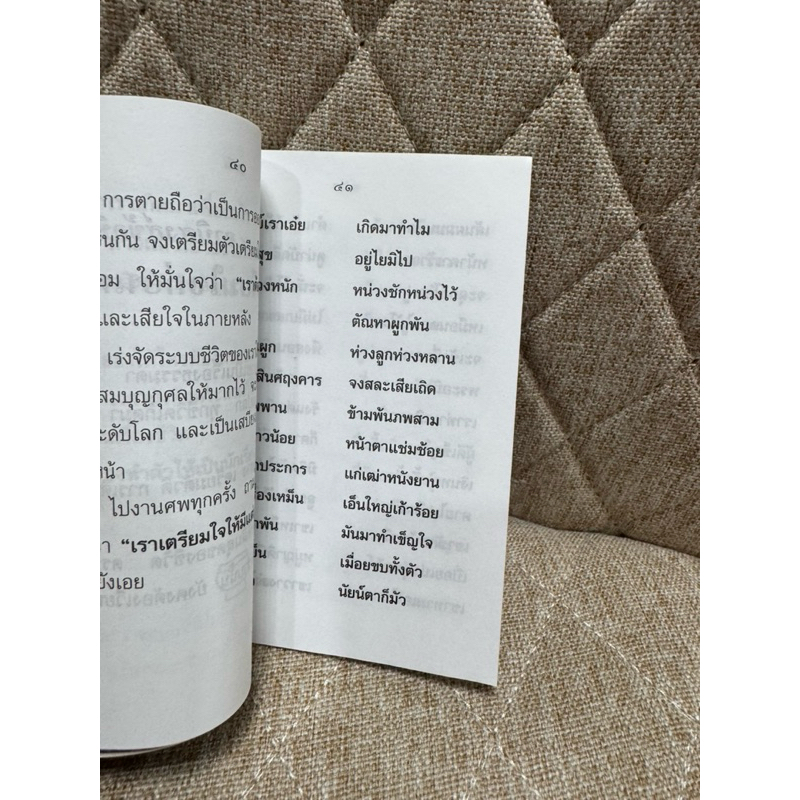 ๔๐
การตายถือว่าเป็นการ
นกัน จงเตรียมตัวเตรียม
อม ให้มั่นใจว่า “เรา
นและเสียใจในภายหลัง
เร่งจัดระบบชีวิตของเรา
สมบุญกุศลให้มากไว้
ะดับโลก และเป็นเสบีย
หน้า
ไปงานศพทุกครั้ง
า “เราเตรียมใจให้มี
ยังเอย
๔๑
ย์เราเอ๋ย เกิดมาทำไม
สุข อยู่ไยมิไป
ห่วงหนัก หน่วงชักหน่วงไว้
ตัณหาผูกพัน
ผูก ห่วงลูกห่วงหลาน
สินศฤงคาร จงสละเสียเถิด
พพาน ข้ามพ้นภพสาม
าวน้อย หน้าตาแช่มช้อย
ประการ แก่เฒ่าหนังยาน
องเหม็น เอ็นใหญ่เก้าร้อย
พัน มันมาทำเข็ญใจ
็น เมื่อยขบทั้งตัว
นัยน์ตาก็มัว